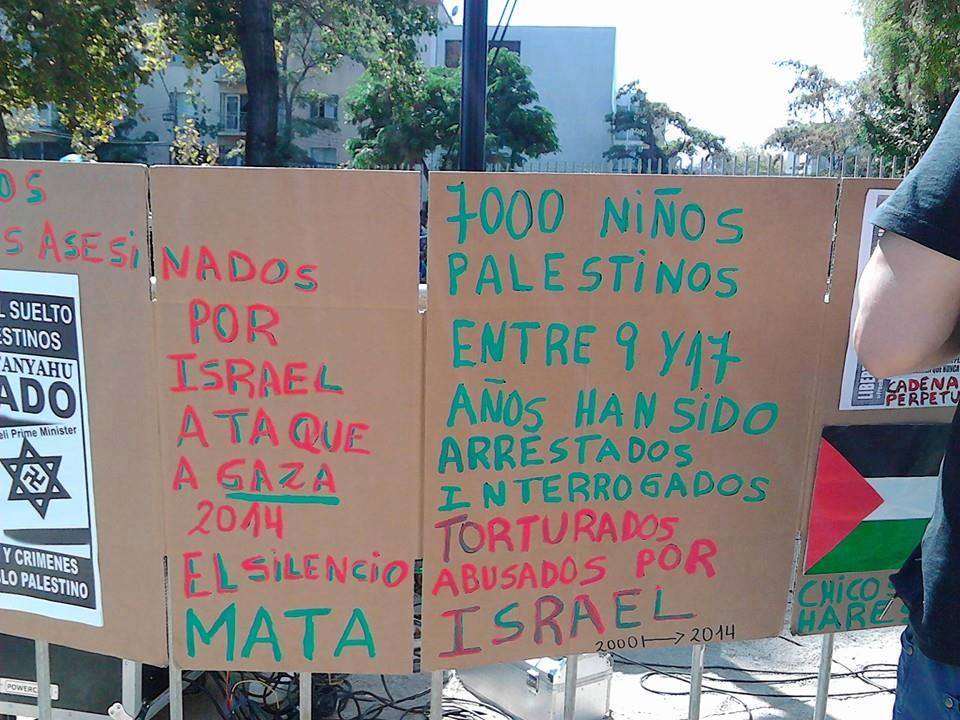 OS
S ASESI
L SUELTO
ESTINOS
TANYAHU
ADO
eli Prime Minister
Y CRIMENES
BLO PALESTINO
NADOS
POR
ISRAEL
ATAQUE
A GAZA
2014
EL SILENCIO
MATA
7000 NIÑOS
PALESTINOS
ENTRE 9 Y 17
AÑOS HAN SIDO
ARRESTADOS
INTERROGADOS
TORTURADOS
ABUSADOS POR
ISRAEL
2000 → 2014
CADENA
PERPETU
CHICOS
HARES
POWERC